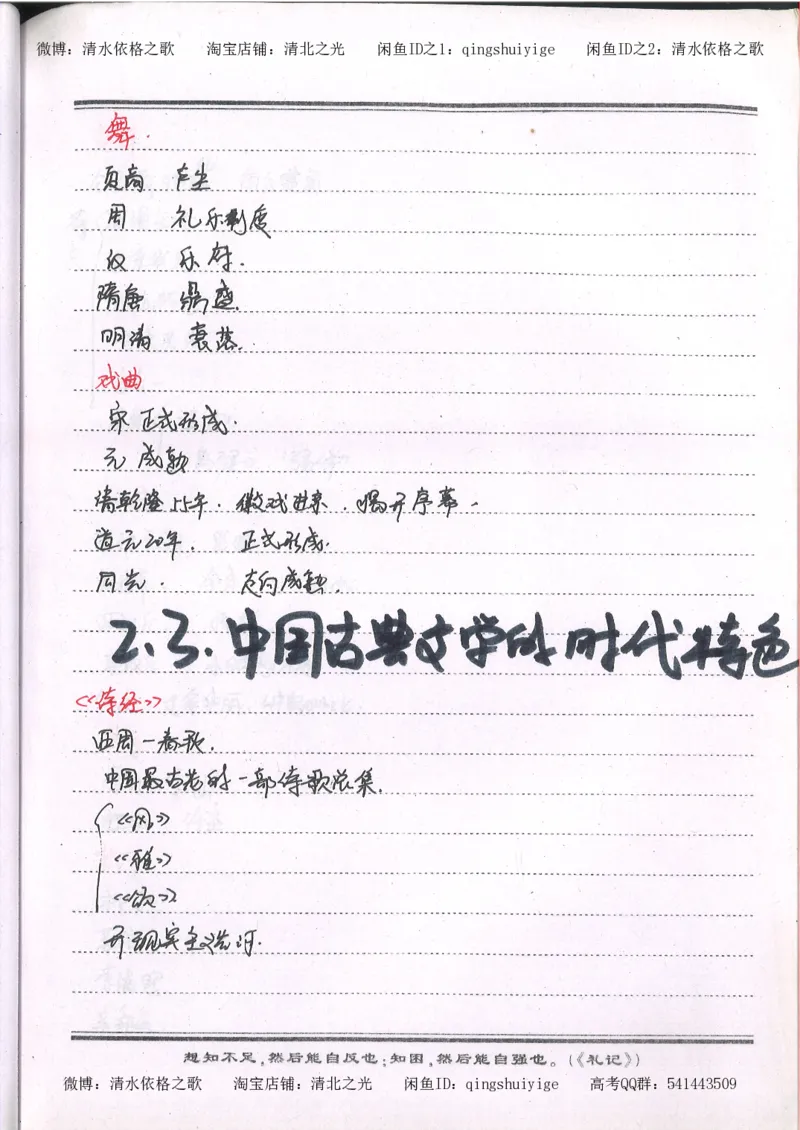 微博：清水依格之歌 淘宝店铺：清北之光 闲鱼ID之1：qingshuiyige 闲鱼ID之2：清水依格之歌
舞.
夏商 产生
周 礼乐制度
汉 乐府.
隋唐 鼎盛.
明清 衰落.
戏曲
宋 正式形成.
元 成熟
清乾隆55年. 徽戏进京. 揭开序幕.
道光20年. 正式形成.
同光. 走向成熟.
2.3.中国古典文学的时代特色
《诗经》
西周—春秋.
中国最古老的一部诗歌总集.
《风》
《雅》
《颂》
开现实主义先河.
想知不足,然后能自反也;知困,然后能自强也。(《礼记》)
微博：清水依格之歌 淘宝店铺：清北之光 闲鱼ID：qingshuiyige 高考QQ群：541443509